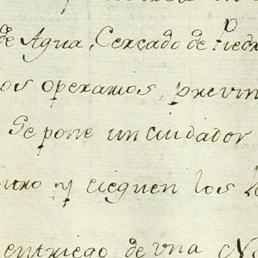 de Agua, Cercado de Piedr
os operamos, previn
Se pone un Cuidador
uxo y cieguen los
entriego de una